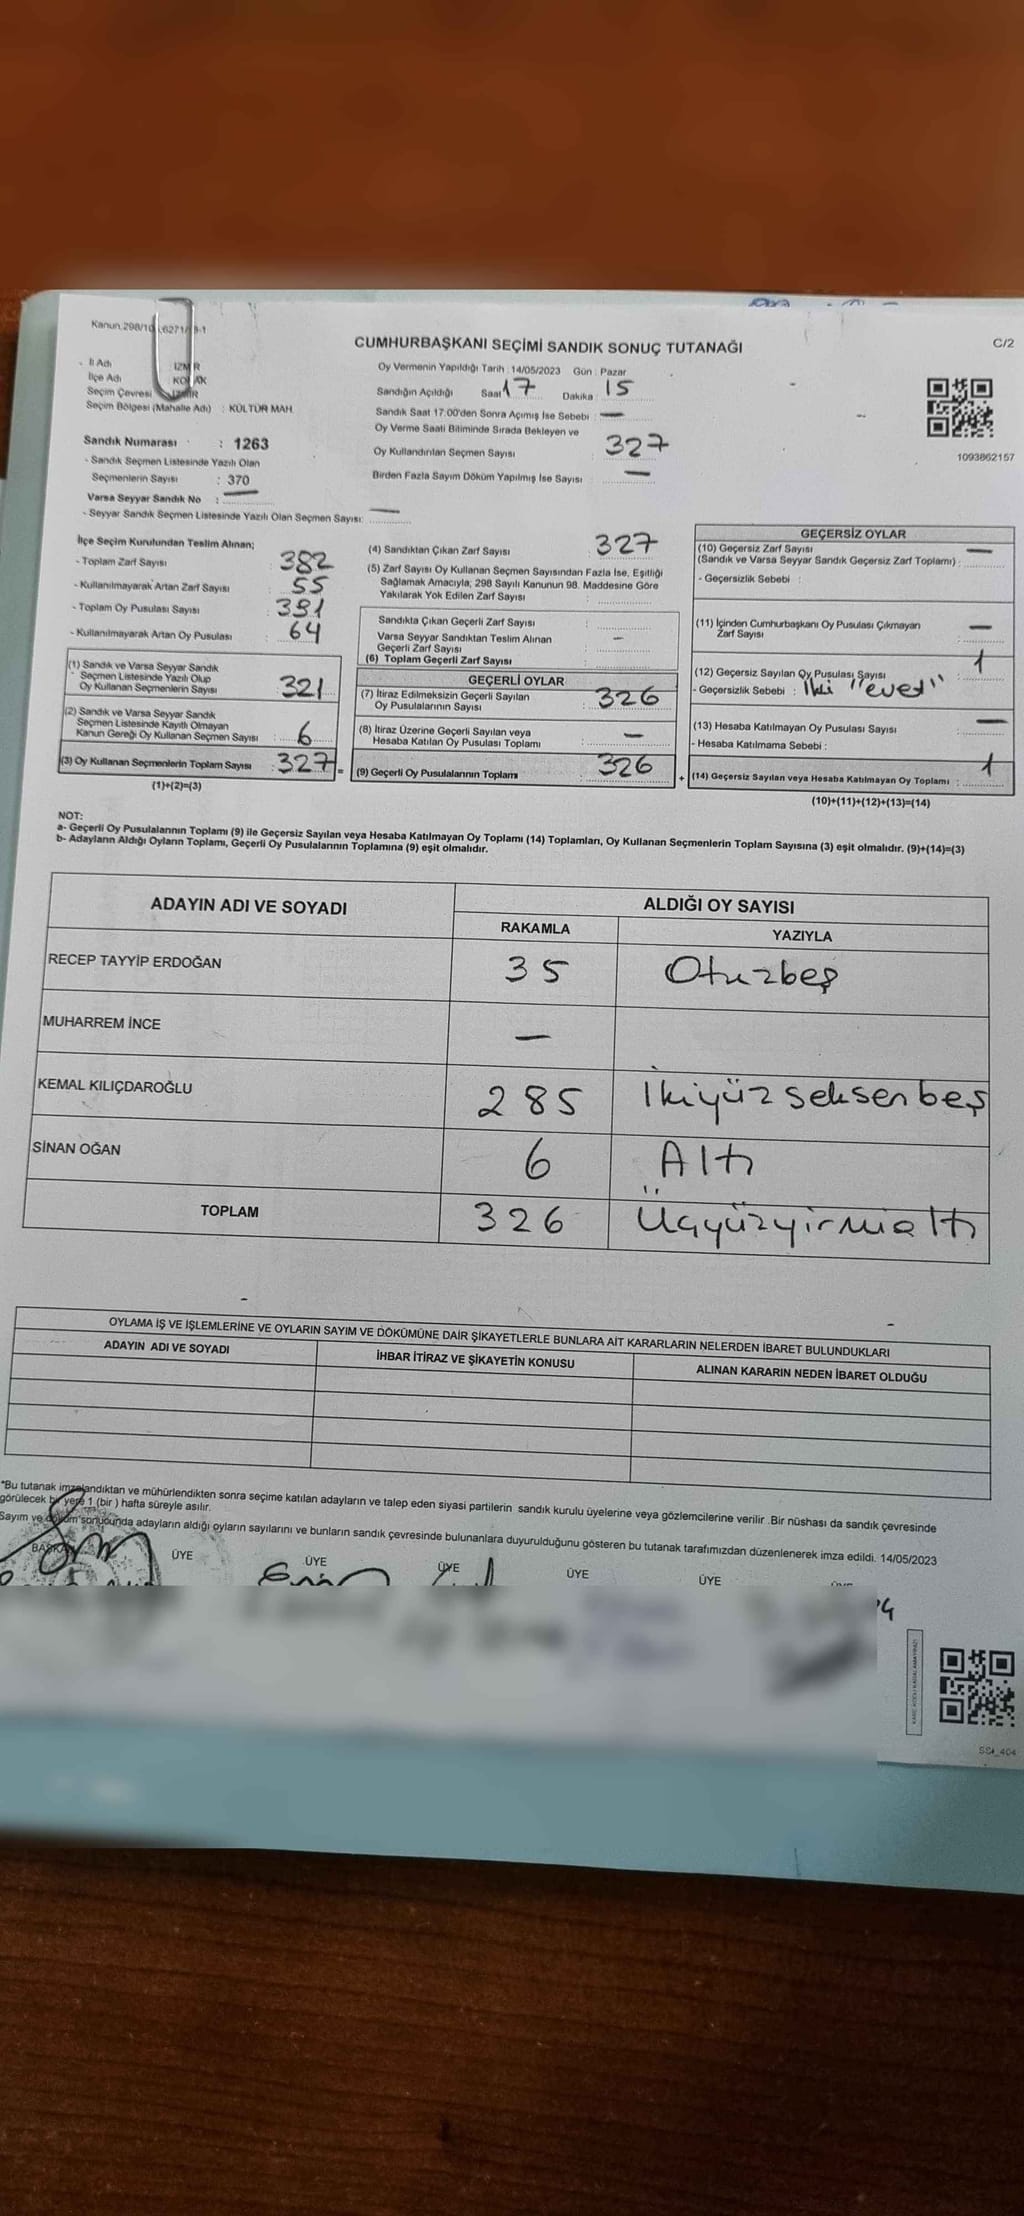 CUMHURBAŞKANI SEÇİMİ SANDIK SONUÇ TUTANAĞI
C/2
İl Adı : İZMİR
İlçe Adı : KONAK
Seçim Çevresi : İZMİR
Seçim Bölgesi (Mahalle Adı) : KÜLTÜR MAH.
Sandık Numarası : 1263
- Sandık Seçmen Listesinde Yazılı Olan
Seçmenlerin Sayısı : 370
Varsa Seyyar Sandık No : —
- Seyyar Sandık Seçmen Listesinde Yazılı Olan Seçmen Sayısı: —
Oy Vermenin Yapıldığı Tarih : 14/05/2023 Gün : Pazar
Sandığın Açıldığı Saat 17 Dakika : 15
Sandık Saat 17:00'den Sonra Açımış İse Sebebi : —
Oy Verme Saati Bitiminde Sırada Bekleyen ve
Oy Kullandırılan Seçmen Sayısı 327
Birden Fazla Sayım Döküm Yapılmış İse Sayısı : —
1093862157
İlçe Seçim Kurulundan Teslim Alınan;
- Toplam Zarf Sayısı : 382
- Kullanılmayarak Artan Zarf Sayısı : 55
- Toplam Oy Pusulası Sayısı : 391
- Kullanılmayarak Artan Oy Pusulası : 64
(1) Sandık ve Varsa Seyyar Sandık
Seçmen Listesinde Yazılı Olup
Oy Kullanan Seçmenlerin Sayısı : 321
(2) Sandık ve Varsa Seyyar Sandık
Seçmen Listesinde Kayıtlı Olmayan
Kanun Gereği Oy Kullanan Seçmen Sayısı : 6
(3) Oy Kullanan Seçmenlerin Toplam Sayısı : 327 =
(1)+(2)=(3)
(4) Sandıktan Çıkan Zarf Sayısı : 327
(5) Zarf Sayısı Oy Kullanan Seçmen Sayısından Fazla İse, Eşitliği
Sağlamak Amacıyla; 298 Sayılı Kanunun 98. Maddesine Göre
Yakılarak Yok Edilen Zarf Sayısı :
Sandıkta Çıkan Geçerli Zarf Sayısı :
Varsa Seyyar Sandıktan Teslim Alınan
Geçerli Zarf Sayısı : —
(6) Toplam Geçerli Zarf Sayısı :
GEÇERLİ OYLAR
(7) İtiraz Edilmeksizin Geçerli Sayılan
Oy Pusulalarının Sayısı : 326
(8) İtiraz Üzerine Geçerli Sayılan veya
Hesaba Katılan Oy Pusulası Toplamı : —
(9) Geçerli Oy Pusulalarının Toplamı : 326 +
GEÇERSİZ OYLAR
(10) Geçersiz Zarf Sayısı
(Sandık ve Varsa Seyyar Sandık Geçersiz Zarf Toplamı) : —
- Geçersizlik Sebebi :
(11) İçinden Cumhurbaşkanı Oy Pusulası Çıkmayan
Zarf Sayısı : —
(12) Geçersiz Sayılan Oy Pusulası Sayısı : 1
- Geçersizlik Sebebi : İki "evet"
(13) Hesaba Katılmayan Oy Pusulası Sayısı : —
- Hesaba Katılmama Sebebi :
(14) Geçersiz Sayılan veya Hesaba Katılmayan Oy Toplamı : 1
(10)+(11)+(12)+(13)=(14)
NOT:
a- Geçerli Oy Pusulalarının Toplamı (9) ile Geçersiz Sayılan veya Hesaba Katılmayan Oy Toplamı (14) Toplamları, Oy Kullanan Seçmenlerin Toplam Sayısına (3) eşit olmalıdır. (9)+(14)=(3)
b- Adayların Aldığı Oyların Toplamı, Geçerli Oy Pusulalarının Toplamına (9) eşit olmalıdır.
ADAYIN ADI VE SOYADI
ALDIĞI OY SAYISI
RAKAMLA YAZIYLA
RECEP TAYYİP ERDOĞAN 35 Otuzbeş
MUHARREM İNCE —
KEMAL KILIÇDAROĞLU 285 İkiyüzseksenbeş
SİNAN OĞAN 6 Altı
TOPLAM 326 Üçyüzyirmialtı
OYLAMA İŞ VE İŞLEMLERİNE VE OYLARIN SAYIM VE DÖKÜMÜNE DAİR ŞİKAYETLERLE BUNLARA AİT KARARLARIN NELERDEN İBARET BULUNDUKLARI
ADAYIN ADI VE SOYADI İHBAR İTİRAZ VE ŞİKAYETİN KONUSU ALINAN KARARIN NEDEN İBARET OLDUĞU
*Bu tutanak imzalandıktan ve mühürlendikten sonra seçime katılan adayların ve talep eden siyasi partilerin sandık kurulu üyelerine veya gözlemcilerine verilir .Bir nüshası da sandık çevresinde
görülecek bir yere 1 (bir ) hafta süreyle asılır.
Sayım ve döküm sonucunda adayların aldığı oyların sayılarını ve bunların sandık çevresinde bulunanlara duyurulduğunu gösteren bu tutanak tarafımızdan düzenlenerek imza edildi. 14/05/2023
BAŞKAN ÜYE ÜYE ÜYE ÜYE ÜYE